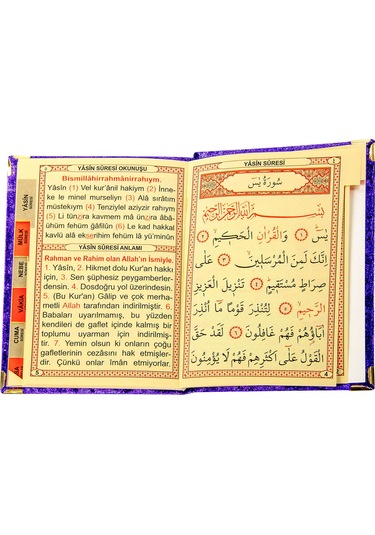 YÂSİN SÛRESİ OKUNUŞU
Bismillâhirrahmânirrahıym.
Yâsîn (1) Vel kur'ânil hakiym (2) İnne-
ke le minel murseliyn (3) Alâ sırâtim
müstekıym (4) Tenziylel aziyzir rahıym
(5) Li tünzira kavmem mâ ünzira âbâ-
ühüm fehüm ğâfilûn (6) Le kad hakkal
kavlü alâ ekserihim fehüm lâ yü'minûn
YÂSİN SÛRESİ ANLAMI
Rahman ve Rahim olan Allah'ın İsmiyle.
1. Yâsîn, 2. Hikmet dolu Kur'an hakkı
için, 3. Sen şüphesiz peygamberler-
densin. 4. Dosdoğru yol üzerindesin.
5. (Bu Kur'an) Gâlip ve çok merha-
metli Allah tarafından indirilmiştir. 6.
Babaları uyarılmamış, bu yüzden
kendileri de gaflet içinde kalmış bir
toplumu uyarman için indirilmiş-
tir. 7. Yemin olsun ki onların çoğu
gafletlerinin cezasını hak etmişler-
dir. Çünkü onlar iman etmiyorlar.
5
YÂSİN
SÛRESİ
MÜLK
NEBE
VÂKIA
CUMA
YÂSİN SÛRESİ
سُورَةُ يٰسٓ
بِسْمِ اللّٰهِ الرَّحْمٰنِ الرَّحِيمِ
يٰسٓ ﴿١﴾ وَالْقُرْاٰنِ الْحَكِيمِ ﴿٢﴾
اِنَّكَ لَمِنَ الْمُرْسَلِينَ ﴿٣﴾ عَلٰى
صِرَاطٍ مُسْتَقِيمٍ ﴿٤﴾ تَنْزِيلَ الْعَزِيزِ
الرَّحِيمِ ﴿٥﴾ لِتُنْذِرَ قَوْمًا مَٓا اُنْذِرَ
اٰبَٓاؤُهُمْ فَهُمْ غَافِلُونَ ﴿٦﴾ لَقَدْ حَقَّ
الْقَوْلُ عَلٰٓى اَكْثَرِهِمْ فَهُمْ لَا يُؤْمِنُونَ
4